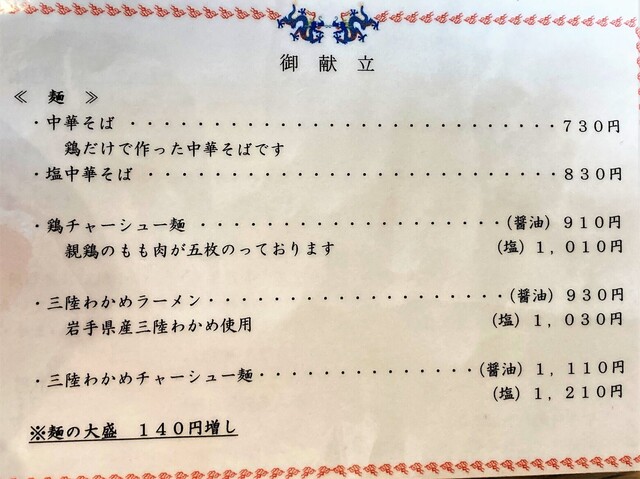 御献立
≪ 麺 ≫
・中華そば ・・・・・・・・・・・・・・・・・・・・・・・・・730円
鶏だけで作った中華そばです
・塩中華そば ・・・・・・・・・・・・・・・・・・・・・・・・830円
・鶏チャーシュー麺 ・・・・・・・・・・・・・・・・・・(醤油) 910円
親鶏のもも肉が五枚のっております (塩) 1,010円
・三陸わかめラーメン・・・・・・・・・・・・・・・・・・(醤油) 930円
岩手県産三陸わかめ使用 (塩) 1,030円
・三陸わかめチャーシュー麺・・・・・・・・・・・・・(醤油) 1,110円
(塩) 1,210円
※麺の大盛 140円増し